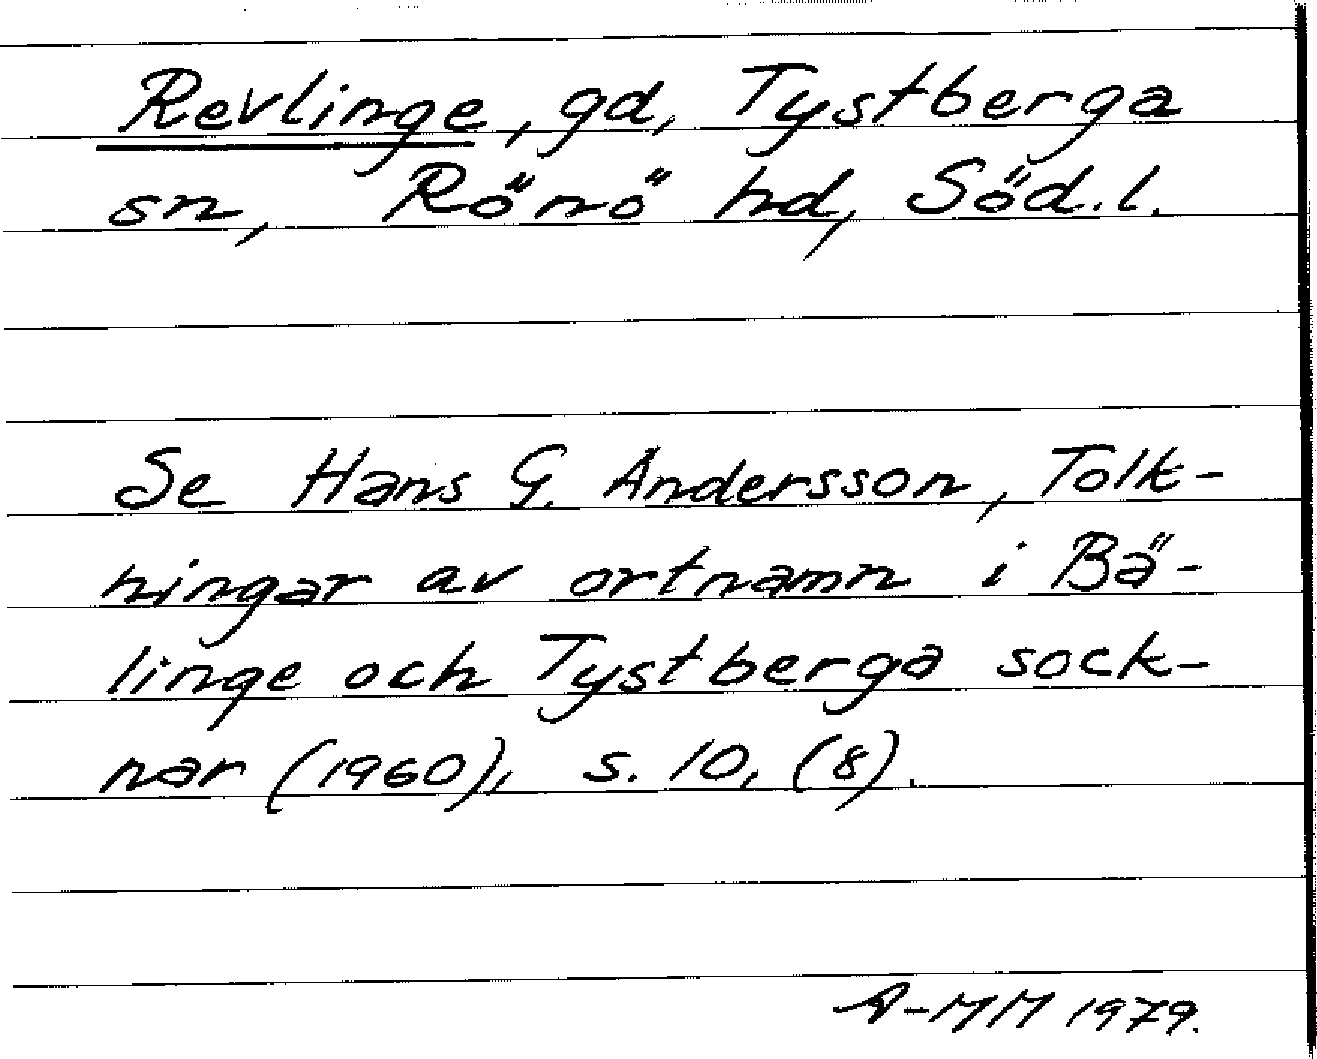 Revlinge, gd, Tystberga
sn, Rönö hd, Söd.l.
Se Hans G. Andersson, Tolk-
ningar av ortnamn i Bä-
linge och Tystberga sock-
nar (1960), s. 10, (8).
A-MM 1979.